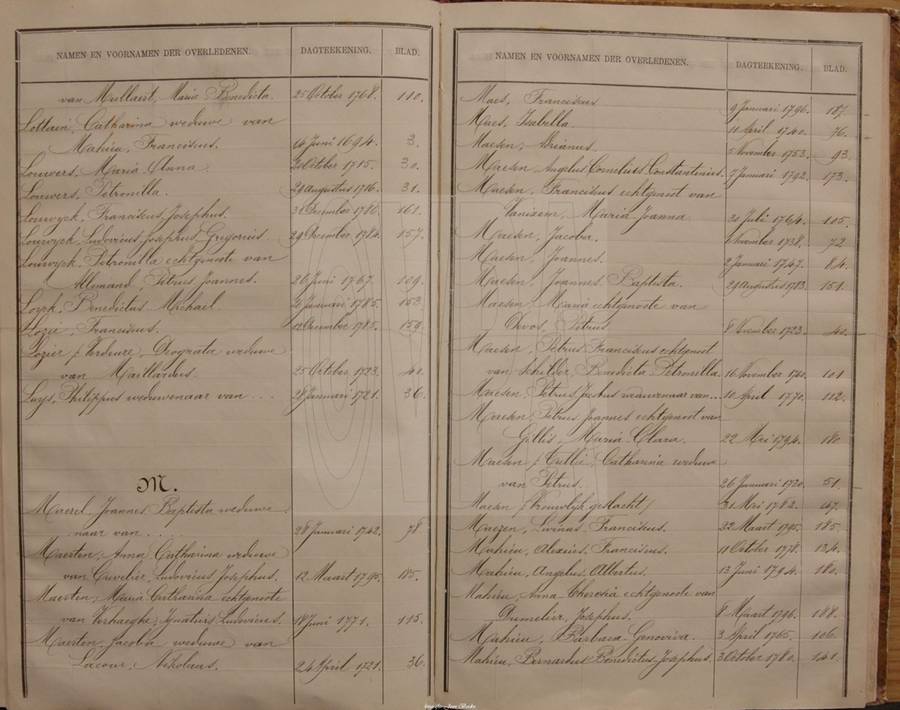 NAMEN EN VOORNAMEN DER OVERLEDENEN. DAGTEEKENING. BLAD.
van Mullaert, Maria Benedicta. 25 October 1768. 110.
Lottain, Catharina weduwe van
Mahieu, Franciscus. Juni 1694. 3.
Louwers, Maria Clara October 1715. 30.
Louwers, Petronilla. 29 Augustus 1716. 31.
Louwyck, Franciscus Josephus. 31 December 1786. 161.
Louwyck, Ludovicus Josephus Gregorius 29 December 1784. 157.
Louwyck, Petronilla echtgenoote van
Allemand, Petrus Joannes. 26 Juni 1767. 109.
Loyck, Benedictus Michael. Januari 1785. 153.
Lozie, Franciscus. December 1785. 159.
Lozier / Verdeure, Deograta weduwe
van Maillardus. 25 October 1723. 40.
Luys, Philippus weduwenaar van . . . 28 Januari 1721. 36.
M.
Maerel, Joannes Baptista weduwe
naar van . . . 28 Januari 1742. 78.
Maerten, Anna Catharina weduwe
van Crevelier, Ludovicus Josephus. 12 Maart 1796. 185.
Maerten, Maria Catharina echtgenoote
van Verhaeghe, Ignatius Ludovicus. Juni 1771. 115.
Maerten, Jacoba weduwe van
Lacour, Nikolaus. 24 April 1721. 36.
NAMEN EN VOORNAMEN DER OVERLEDENEN. DAGTEEKENING. BLAD.
Maes, Franciscus 9 Januari 1796. 187.
Maes, Isabella 11 April 1740. 76.
Maesen, Adrianus. November 1753. 93.
Maesen Angelus Cornelius Constantinus. 7 Januari 1792. 173.
Maesen, Franciscus echtgenoot van
Janssen, Maria Joanna 30 Juli 1764. 105.
Maesen, Jacoba. November 1738. 72
Maesen, Joannes. 2 Januari 1747. 84.
Maesen, Joannes Baptista. 29 Augustus 1783. 151.
Maesen, Maria echtgenoote van
Devos, Petrus 8 December 1723. 40.
Maesen, Petrus Franciscus echtgenoot
van Schilder, Benedicta Petronilla. 16 November 1760. 101
Maesen, Petrus Justus weduwenaar van.. 10 April 1770. 112.
Maesen, Petrus Joannes echtgenoot van
Gillis, Maria Clara. 22 Mei 1794. 180.
Maesen / Cullie, Catharina weduwe
van Petrus. 26 Januari 1730. 51.
Maesen (Vrouwlijk geslacht) 31 Mei 1782. 147.
Maezen, Livinus Franciscus. 22 Maart 1795. 185.
Mahieu, Alexius, Franciscus. 11 October 1778. 134.
Mahieu, Angelus Albertus. 13 Juni 1794. 180.
Mahieu, Anna Theresia echtgenoote van
Dumelier, Josephus. 8 Maart 1796. 188.
Mahieu, Barbara Genoviva. 3 April 1765. 106.
Mahieu, Bernardus Benedictus Josephus. 3 October 1780. 141.